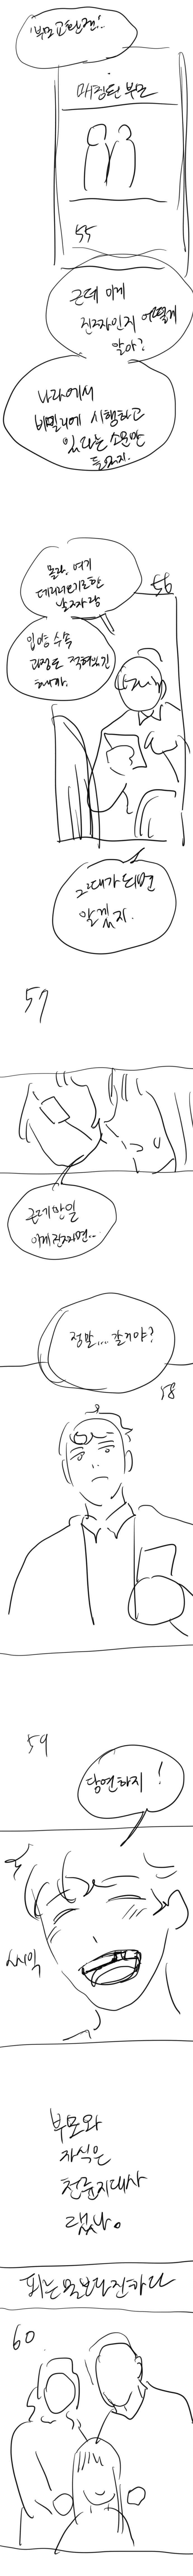 '부모교환권'
매칭된 부모
55
근데 이게
진짜인지 어떻게
알아?
나라에서
비밀리에 시행하고
있다는 소문만
들었지.
56
몰라, 여기
데리러 오기로 한
날짜랑
입양 수속
과정도 적혀있긴
한데..
그때가 되면
알겠지.
57
근데 만일
이게 진짜면..
정말... 갈거야?
58
59
당연하지!
씨익
부모와
자식은
천륜지대사
랬나.
피는 물보다 진하다
60